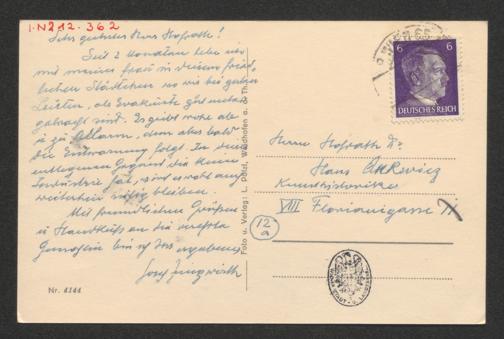 I.N 212.362
Sehr geehrter Herr Hofrath!
Seit 2 Monaten lebe ich
mit meiner Frau in diesem fried-
lichen Städtchen wo wir bei guten
Leuten, als Evakuirte gut unter-
gebracht sind. Es giebt wohl ab
u zu Allarm, dem aber bald
die Entwarnung folgt. In dieser
entlegenen Gegend die keine
Industrie hat, wird es wohl auch
weiterhin ruhig bleiben.
Mit freundlichen Grüßen
u Handkuss an die
bin ich Ihr ergebener
Josef Jungwirth
Nr. 4144
Foto u. Verlag: L. Pölzl, Waidhofen a. d. Th.
6 6
DEUTSCHES REICH
Herrn Hofrath Dr.
Hans
Kunsthistoriker
VIII Florianigasse
12
a